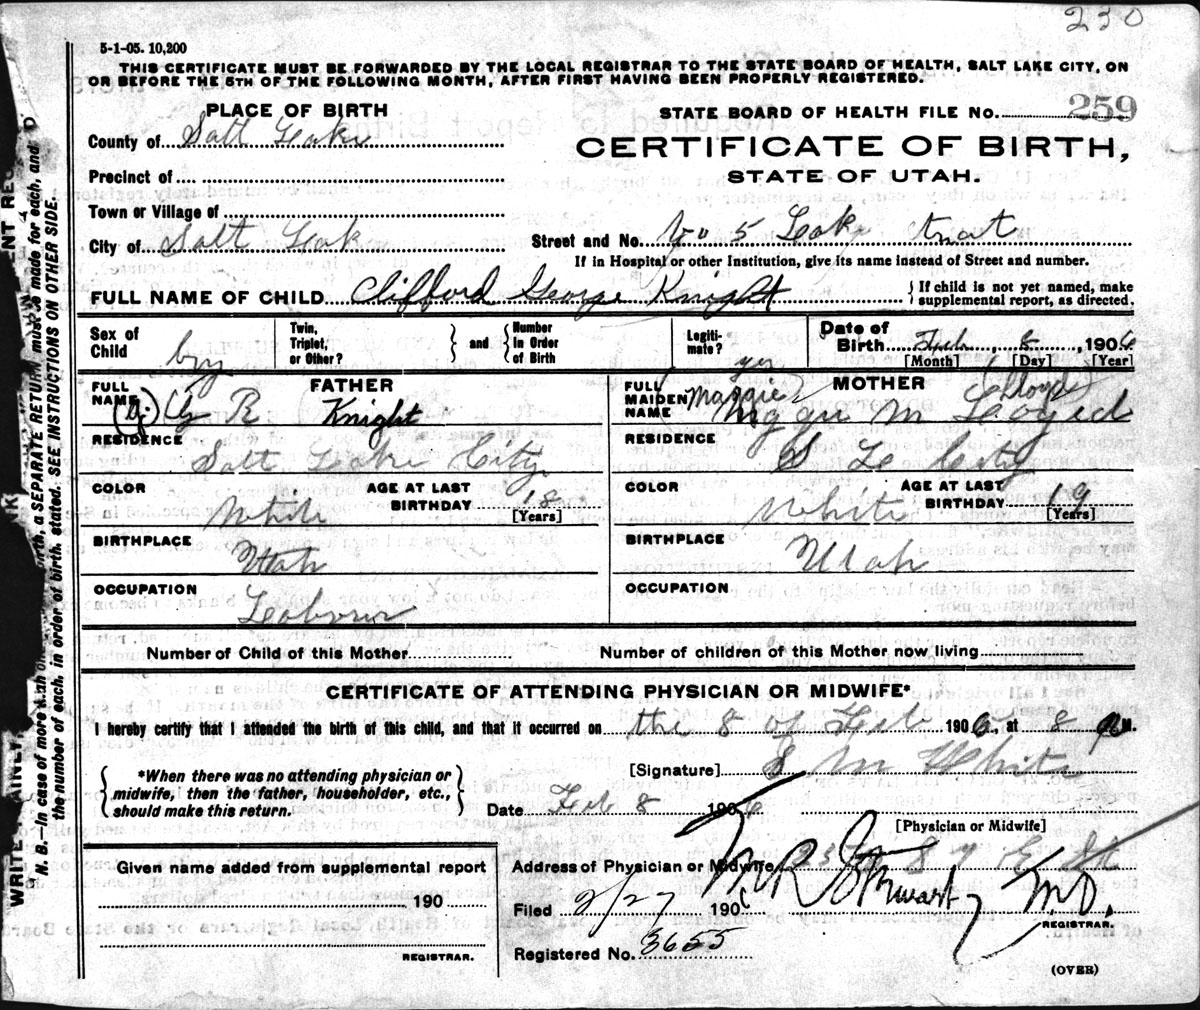 230
5-1-05. 10,200
THIS CERTIFICATE MUST BE FORWARDED BY THE LOCAL REGISTRAR TO THE STATE BOARD OF HEALTH, SALT LAKE CITY, ON
OR BEFORE THE 5TH OF THE FOLLOWING MONTH, AFTER FIRST HAVING BEEN PROPERLY REGISTERED.
PLACE OF BIRTH
STATE BOARD OF HEALTH FILE No. 259
County of Salt Lake
CERTIFICATE OF BIRTH,
Precinct of
STATE OF UTAH.
Town or Village of
City of Salt Lake
Street and No. No 5 Lake
If in Hospital or other Institution, give its name instead of Street and number.
FULL NAME OF CHILD Clifford George Knight
{If child is not yet named, make supplemental report, as directed.
Sex of Child boy
Twin, Triplet, or Other?
} and {
Number in Order of Birth
Legitimate? yes
Date of Birth Feb 8, 1906
[Month] [Day] [Year]
FULL NAME FATHER
(G.) G R Knight
FULL MAIDEN NAME MOTHER
Maggie M (Lloyd)
RESIDENCE
Salt Lake City
RESIDENCE
S L City
COLOR White
AGE AT LAST BIRTHDAY 18
[Years]
COLOR White
AGE AT LAST BIRTHDAY 19
[Years]
BIRTHPLACE
Utah
BIRTHPLACE
Utah
OCCUPATION
Laborer
OCCUPATION
Number of Child of this Mother
Number of children of this Mother now living
CERTIFICATE OF ATTENDING PHYSICIAN OR MIDWIFE*
I hereby certify that I attended the birth of this child, and that it occurred on the 8 of Feb 1906, at 8 M.
{*When there was no attending physician or midwife, then the father, householder, etc., should make this return.}
[Signature] S M White
Date Feb 8 1906
[Physician or Midwife]
Given name added from supplemental report
190
REGISTRAR.
Address of Physician or Midwife E
Filed 2/27 1906
M.D.
REGISTRAR.
Registered No. 3655
(OVER)
N. B.—In case of more than one birth, a SEPARATE RETURN must be made for each, and
the number of each, in order of birth, stated. SEE INSTRUCTIONS ON OTHER SIDE.